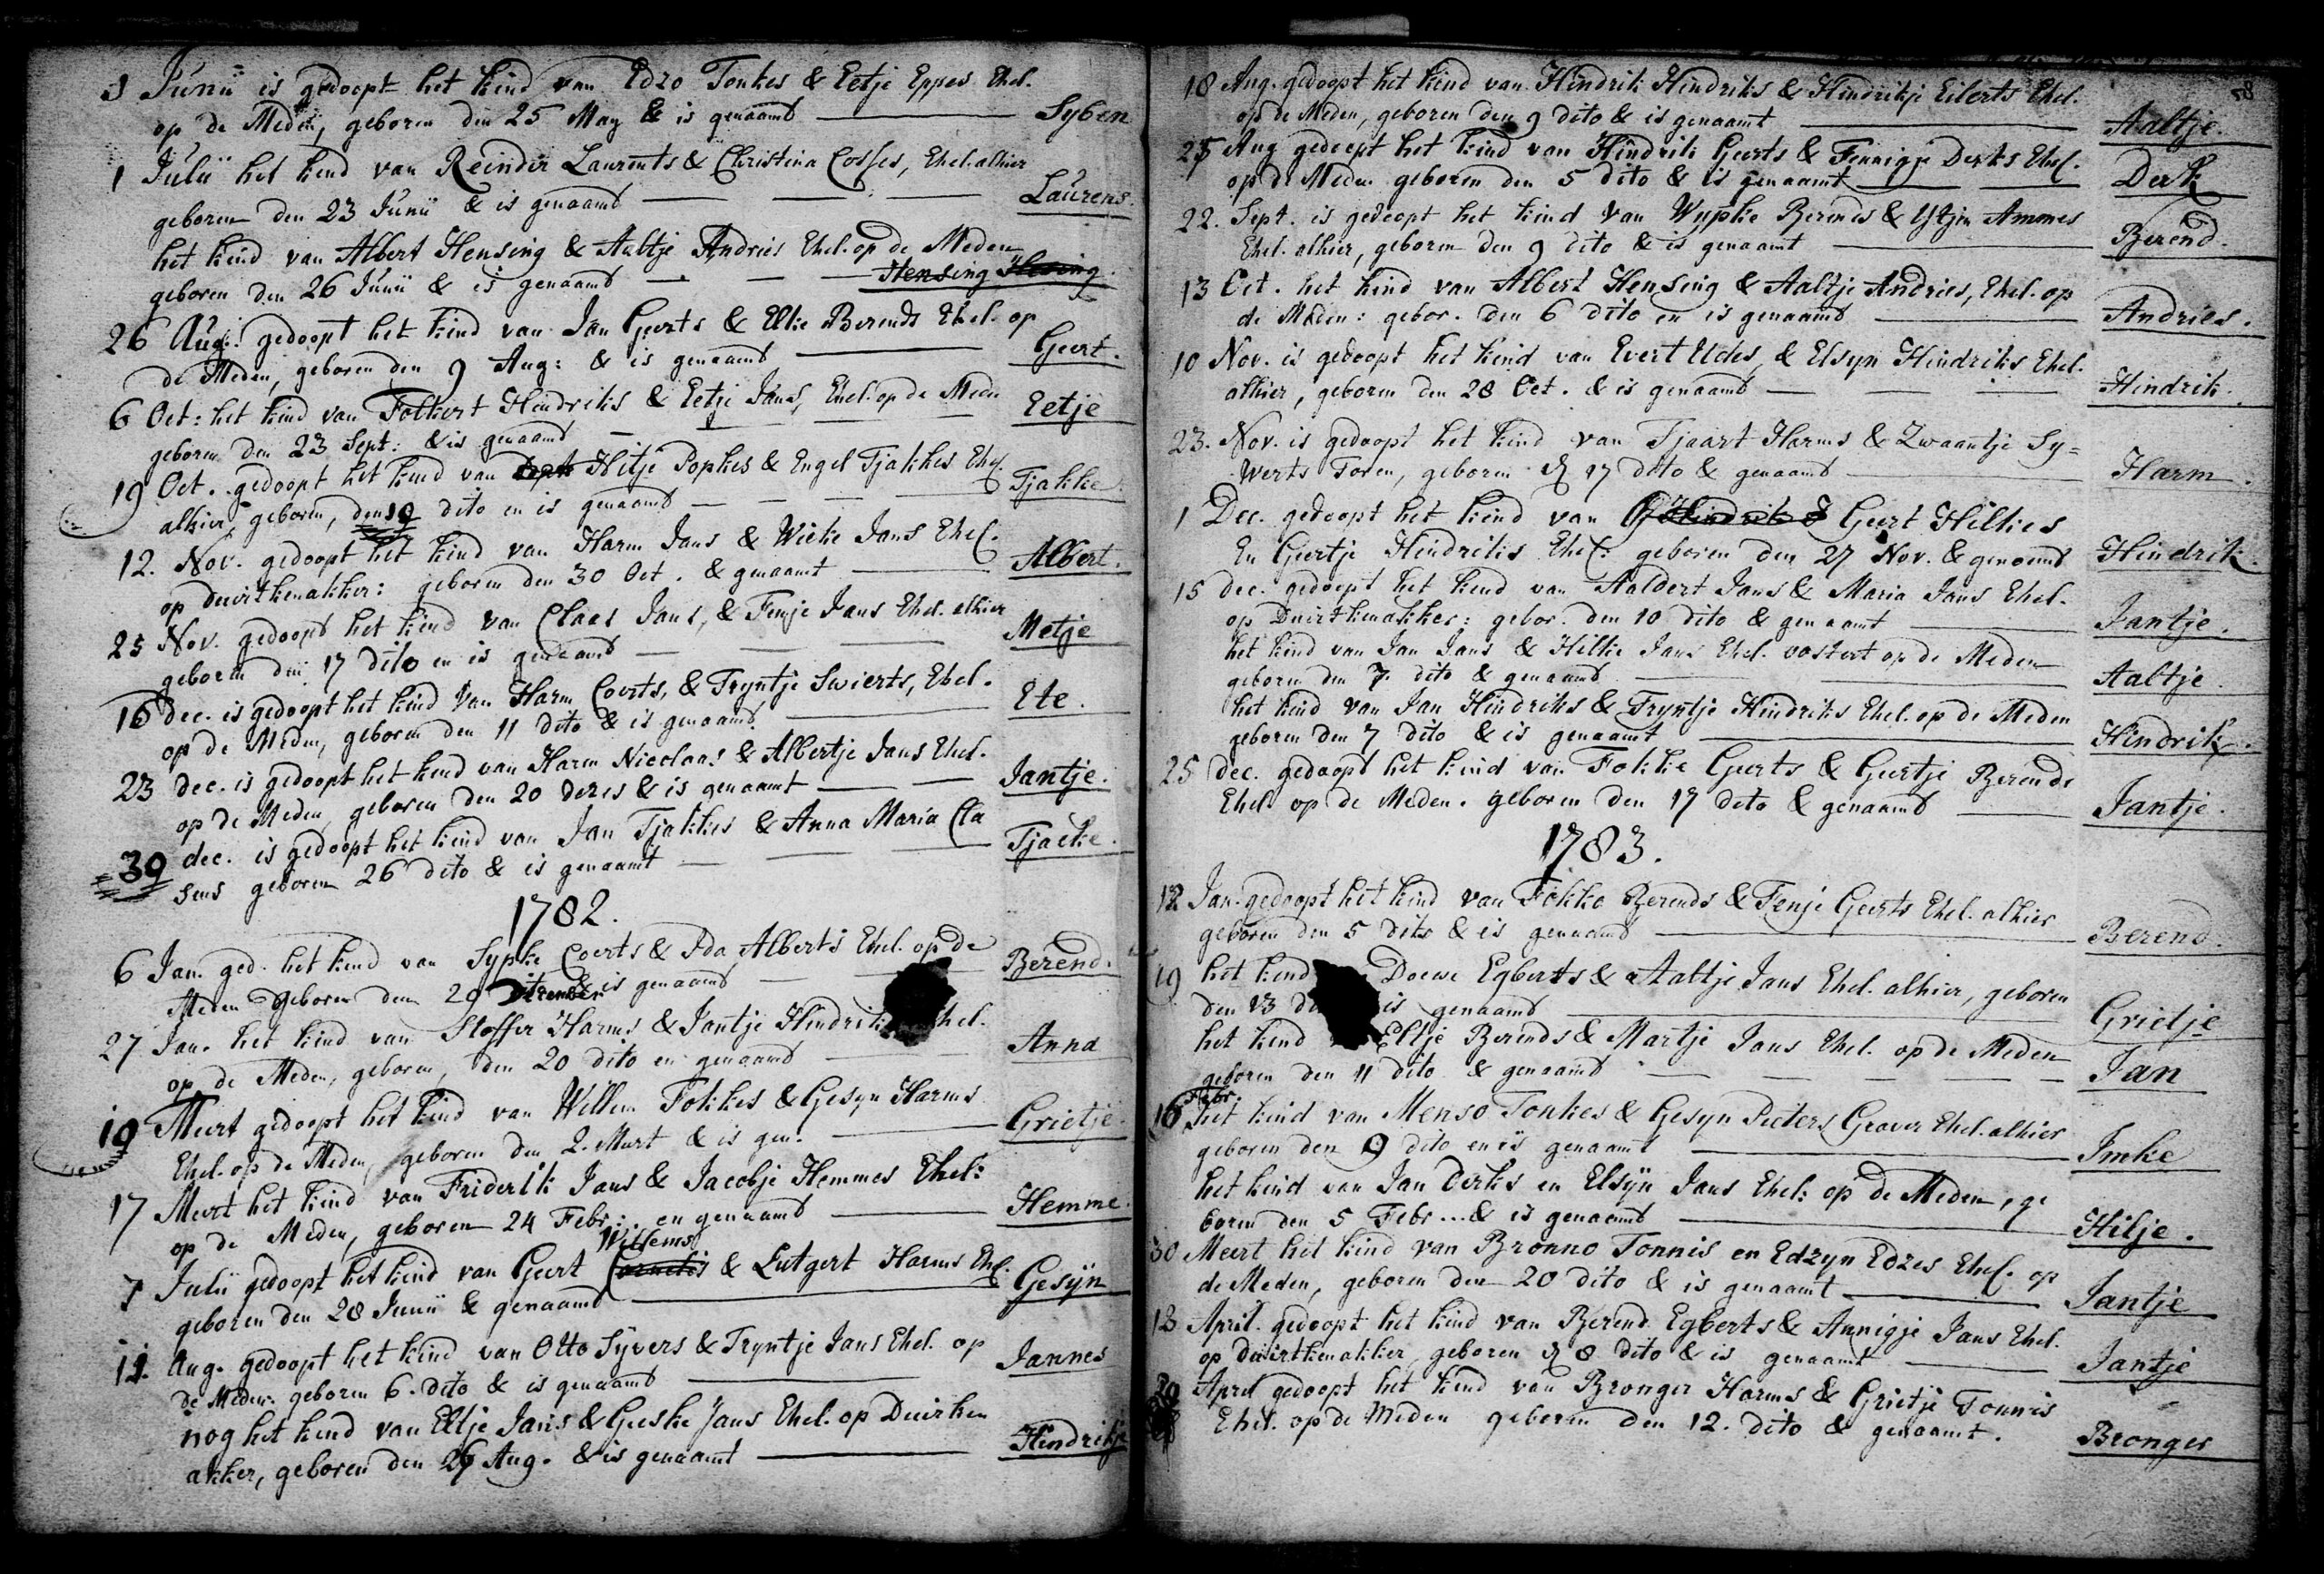 3 Junii is gedoopt het kind van Edzo Tonkes & Eetje Eppes Ehel.
op de Meden, geboren den 25 May & is genaamd Syben
1 Julii het kind van Reinder Laurents & Christina Cosses, Ehel. alhier
geboren den 23 Junii & is genaamd Laurens.
het kind van Albert Hensing & Aaltje Andries Ehel. op de Meden
geboren den 26 Junii & is genaamd Hensing Hesing
26 Aug: gedoopt het kind van Jan Geerts & Elke Berends Ehel. op
de Meden, geboren den 9 Aug: & is genaamd Geert.
6 Oct: het kind van Folkert Hindriks & Eetje Jans, Ehel. op de Meden
geboren den 23 Sept: & is genaamd Eetje
19 Oct. gedoopt het kind van Hitje Popkes & Engel Tjakkes Ehel.
alhier, geboren, den 19 dito en is genaamd Tjakke
12. Nov. gedoopt het kind van Harm Jans & Wieke Jans Ehel.
op duirkenakker: geboren den 30 Oct. & genaamt Albert.
25 Nov. gedoopt het kind van Claes Jans, & Femje Jans Ehel. alhier
geboren den 17 dito en is genaamd Metje
16 dec. is gedoopt het kind van Harm Coerts, & Tryntje Swierts, Ehel.
op de Meden, geboren den 11 dito & is genaamd Ete.
23 dec. is gedoopt het kend van Harm Nicolaas & Albertje Jans Ehel.
op de Meden geboren den 20 dezes & is genaamt Jantje.
30 dec. is gedoopt het kind van Jan Tjakkes & Anna Maria Cla
sens geboren 26 dito & is genaamt Tjacke.
1782.
6 Jan. ged. het kend van Sypke Coerts & Ida Alberts Ehel. op de
Meden geboren den 29 December & is genaamd Berend.
27 Jan. het kind van Stoffer Harms & Jantje Hindriks Ehel.
op de Meden, geboren, den 20 dito en genaamd Anna
19 Meert gedoopt het kind van Willem Fokkes & Gesyn Harms
Ehel. op de Meden, geboren den 2. Mert & is gen: Grietje.
17 Meert het kind van Friderik Jans & Jacobje Hemmes Ehel:
op de Meden, geboren 24 Febr: en genaamd Hemme.
Willems
7 Julii gedoopt het kind van Geert Cornelis & Lutgert Harms Ehel.
geboren den 28 Junii & genaamd Gesijn
11. Aug. gedoopt het kind van Otto Syvers & Tryntje Jans Ehel. op
de Meden. geboren 6. dito & is genaamd Jannes
nog het kend van Eltje Jans & Geeske Jans Ehel. op Duirken
akker, geboren den Aug. & is genaamt Hindrikje
58
18 Aug. gedoopt het kind van Hindrik Hindriks & Hindrikje Eilerts Ehel.
op de Meden, geboren den 9 dito & is genaamt Aaltje.
25 Aug gedoopt het kind van Hindrik Geerts & Fennigje Derks Ehel.
op de Meden geboren den 5 dito & is genaamt Derk
22. Sept. is gedoopt het kind van Wypke Berends & Ytjen Ammes
Ehel. alhier, geboren den 9 dito & is genaamt Berend.
13 Oct. het kind van Albert Hensing & Aaltje Andries, Ehel. op
de Meden: gebor. den 6 dito en is genaamd Andries.
10 Nov. is gedoopt het kind van Evert Udes, & Elsyn Hindriks Ehel.
alhier, geboren den 28 Oct. & is genaamd Hindrik.
23. Nov. is gedoopt het kind van Tjaart Harms & Zwaantje Sy=
werts Toren, geboren d 17 dito & genaamd Harm.
1 Dec. gedoopt het kind van Hindrik Geert Hilkes
En Geertje Hindriks Ehel: geboren den 27 Nov. & genaamd Hindrik.
15 dec. gedoopt het kend van Aaldert Jans & Maria Jans Ehel.
op Duirkenakker: gebor. den 10 dito & genaamt Jantje.
het kind van Jan Jans & Hilke Jans Ehel. vostert op de Meden
geboren den 7. dito & genaamd Aaltje.
het kind van Jan Hindriks & Tryntje Hindriks Ehel. op de Meden
geboren den 7 dito & is genaamt Hindrik.
25 dec. gedoopt het kind van Fokke Geerts & Geertje Berends
Ehel. op de Meden. geboren den 17 dito & genaamd Jantje.
1783.
12 Jan. gedoopt het kind van Fokko Berends & Fenje Geerts Ehel. alhier
geboren den 5 dito & is genaamd Berend.
19 het kend Doewe Egberts & Aaltje Jans Ehel. alhier, geboren
den 13 is genaamd Grietje
het kend Eltje Berends & Martje Jans Ehel. op de Meden
geboren den 11 dito & genaamd Jan
Febr.
16 het kind van Menso Tonkes & Gesyn Pieters Graver Ehel. alhier
geboren den 9 dito en is genaamt Imke
het kind van Jan Derks en Elsyn Jans Ehel: op de Meden, ge
boren den 5 Febr... & is genaamd Hilje.
30 Meert het kind van Bronno Tonnis en Edzyn Edzes Ehel. op
de Meden, geboren den 20 dito & is genaamt Jantje
13 April. gedoopt het kind van Berend Egberts & Annigje Jans Ehel.
op duirkenakker geboren d 8 dito & is genaamt Jantje
20 April gedoopt het kend van Bronger Harms & Grietje Tonnis
Ehel. op de Meden geboren den 12. dito & genaamt. Bronger